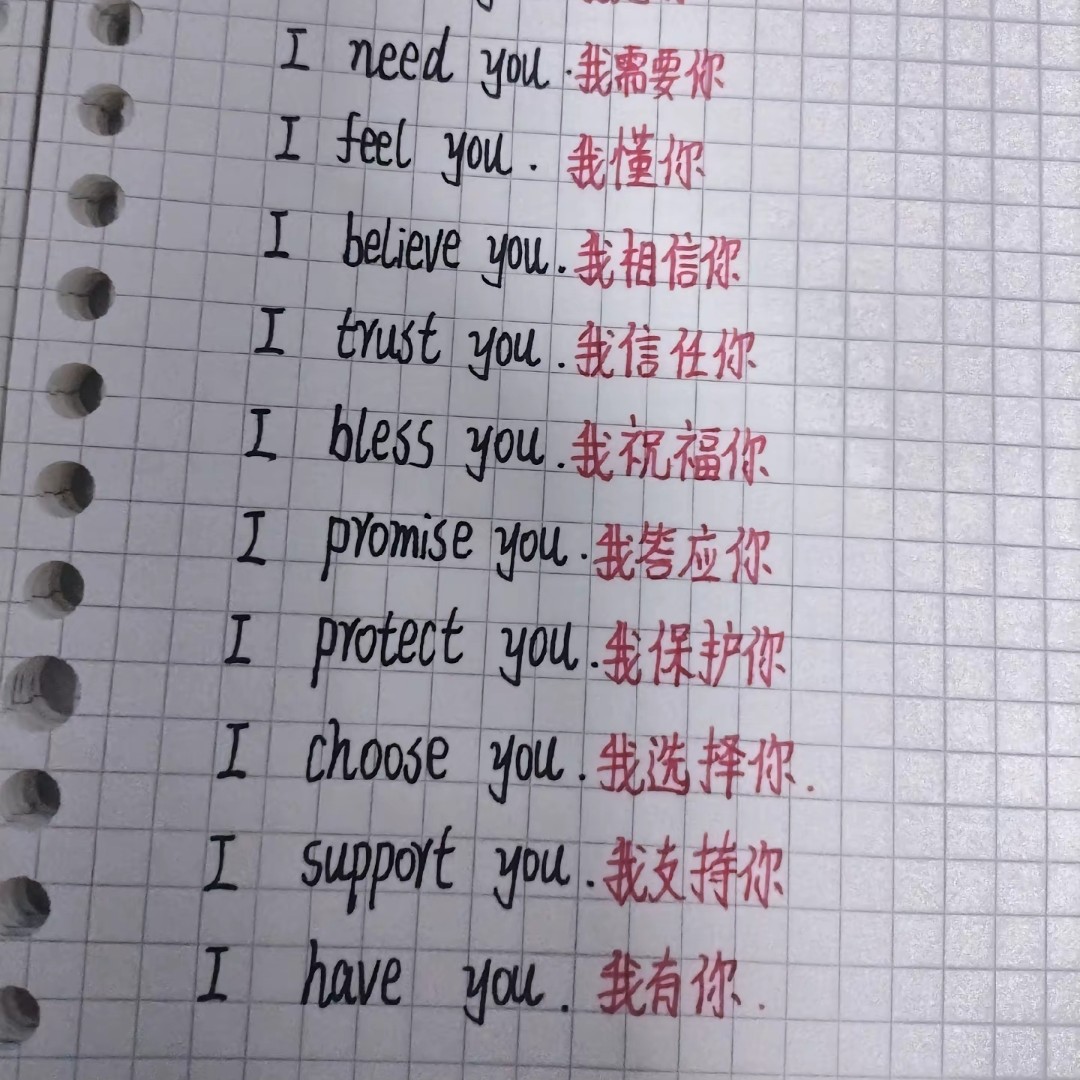 I need you.我需要你
I feel you. 我懂你
I believe you.我相信你
I trust you.我信任你
I bless you.我祝福你
I promise you.我答应你
I protect you.我保护你
I choose you.我选择你.
I support you.我支持你
I have you. 我有你.